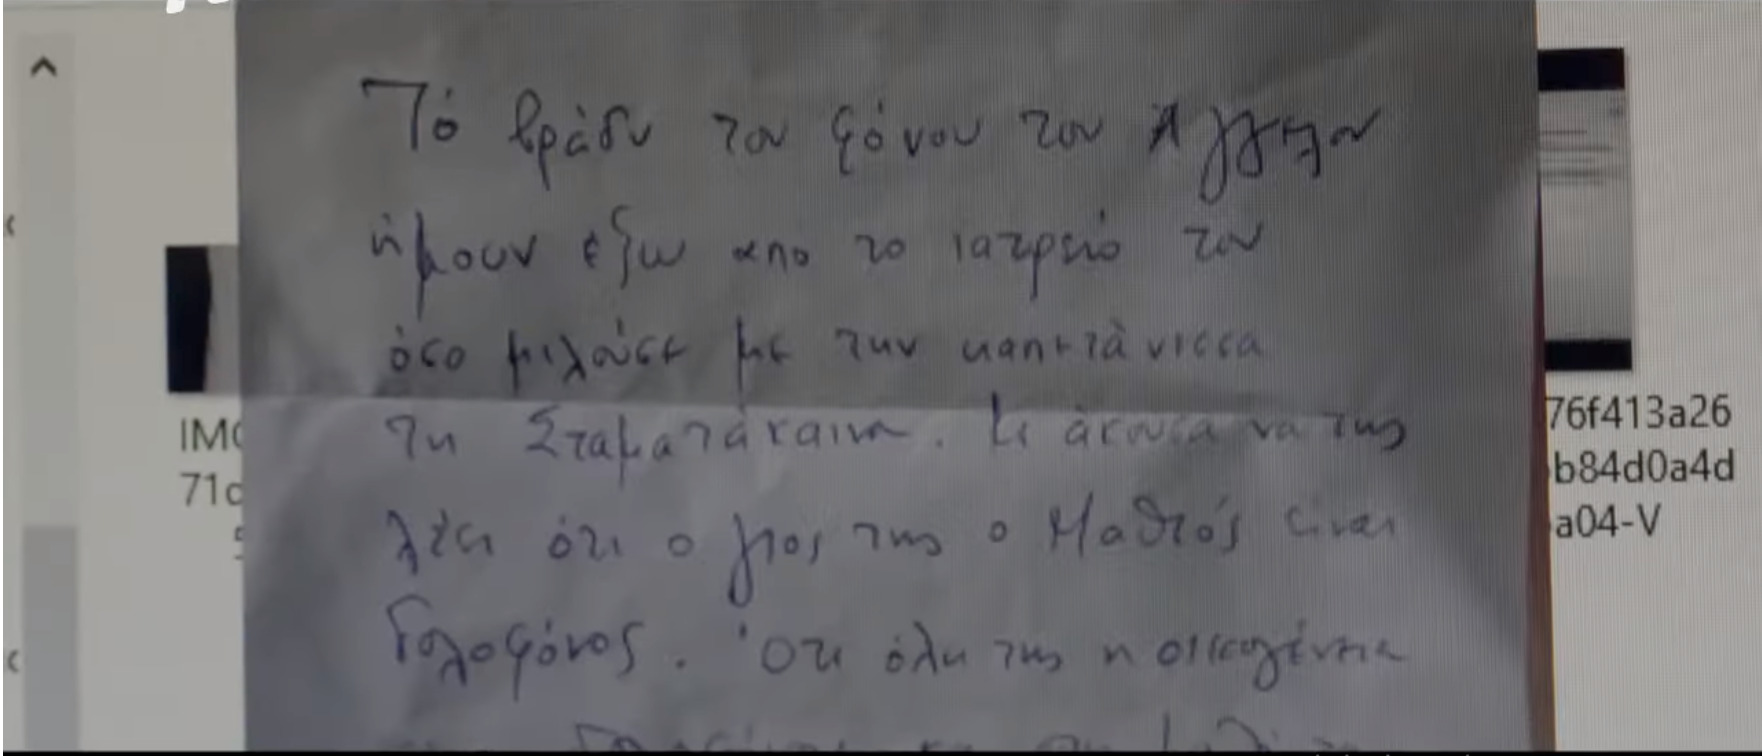 Τό βράδυ του φόνου του Άγγελου
ήμουν έξω απο το ιατρείο του
όσο μιλούσε με την καπετάνισσα
τη Σταματάκαινα. Κι άκουσα να της
λέει ότι ο γιος της ο Μαθιός είναι
δολοφόνος. Ότι όλη της η οικογένεια
IM
71c
76f413a26
b84d0a4d
a04-V